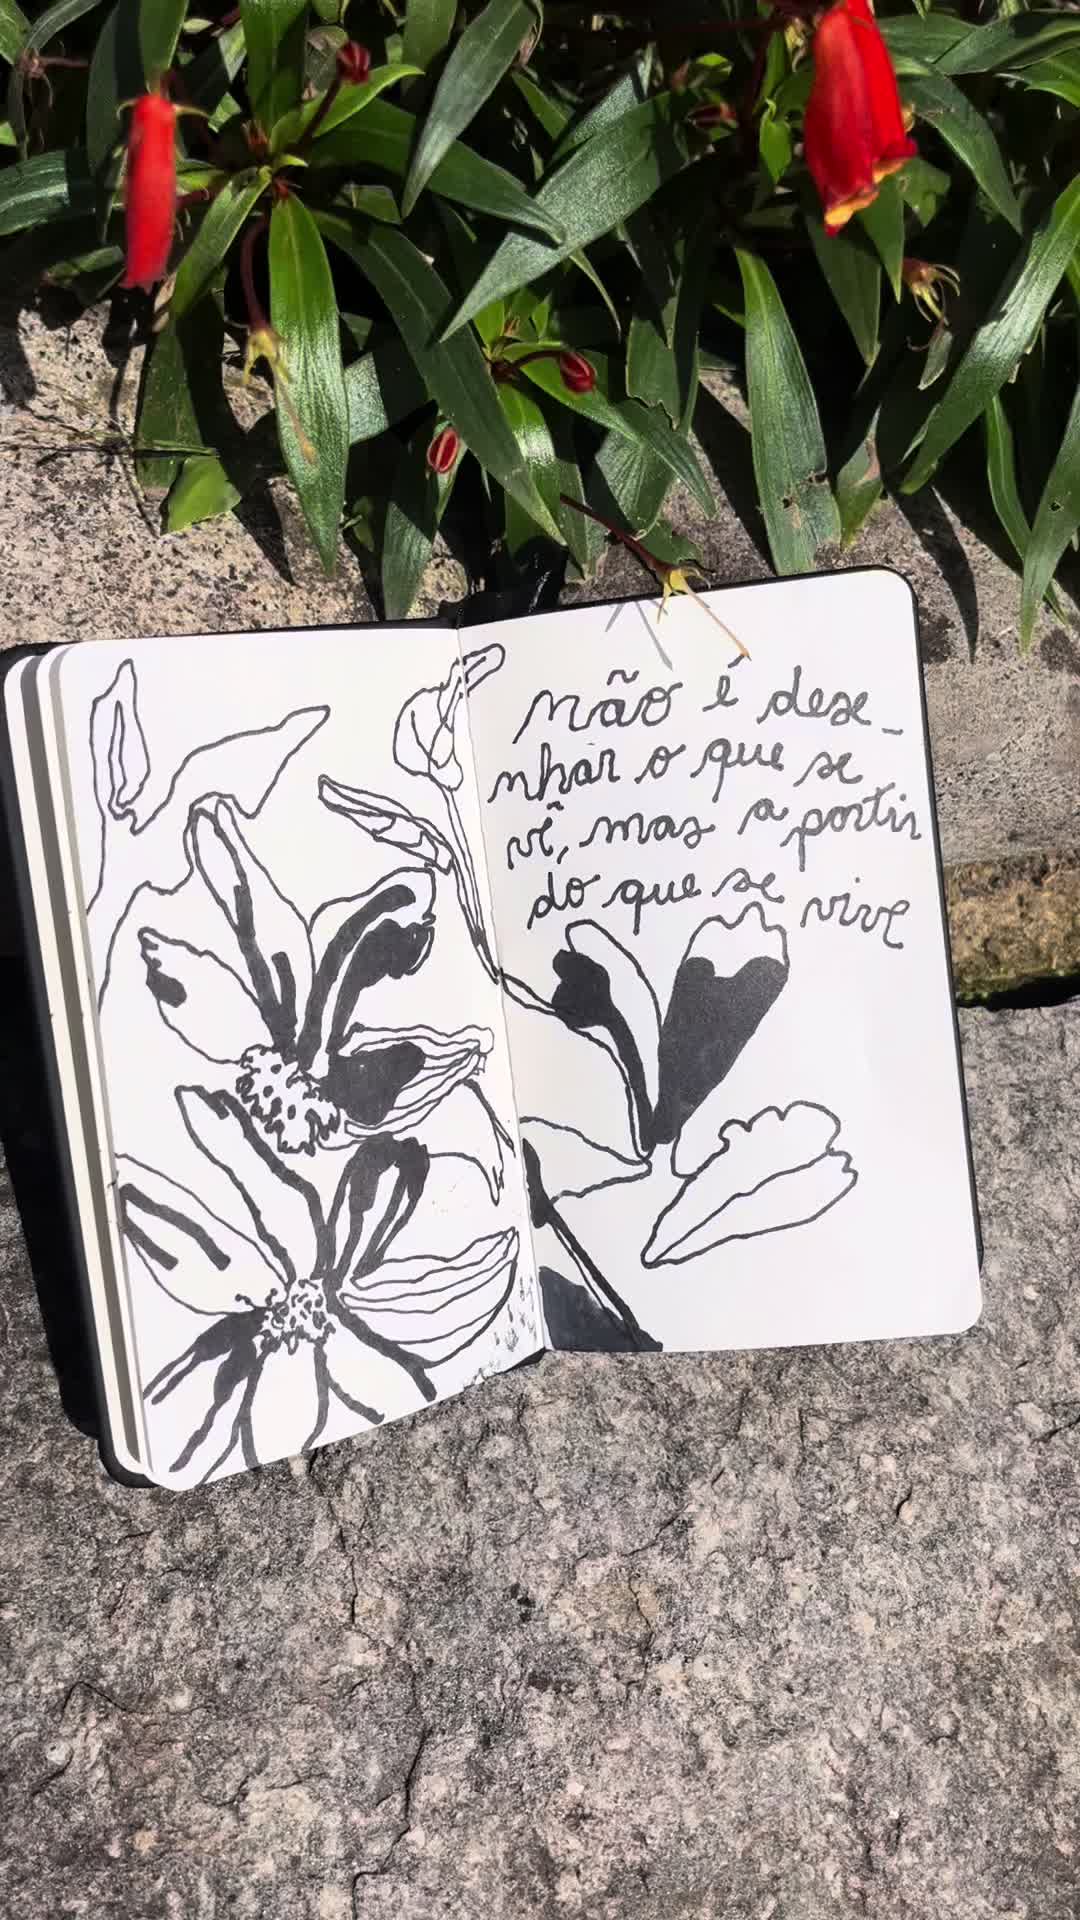 não é dese_
nhar o que se
vê, mas a partir
do que se vive